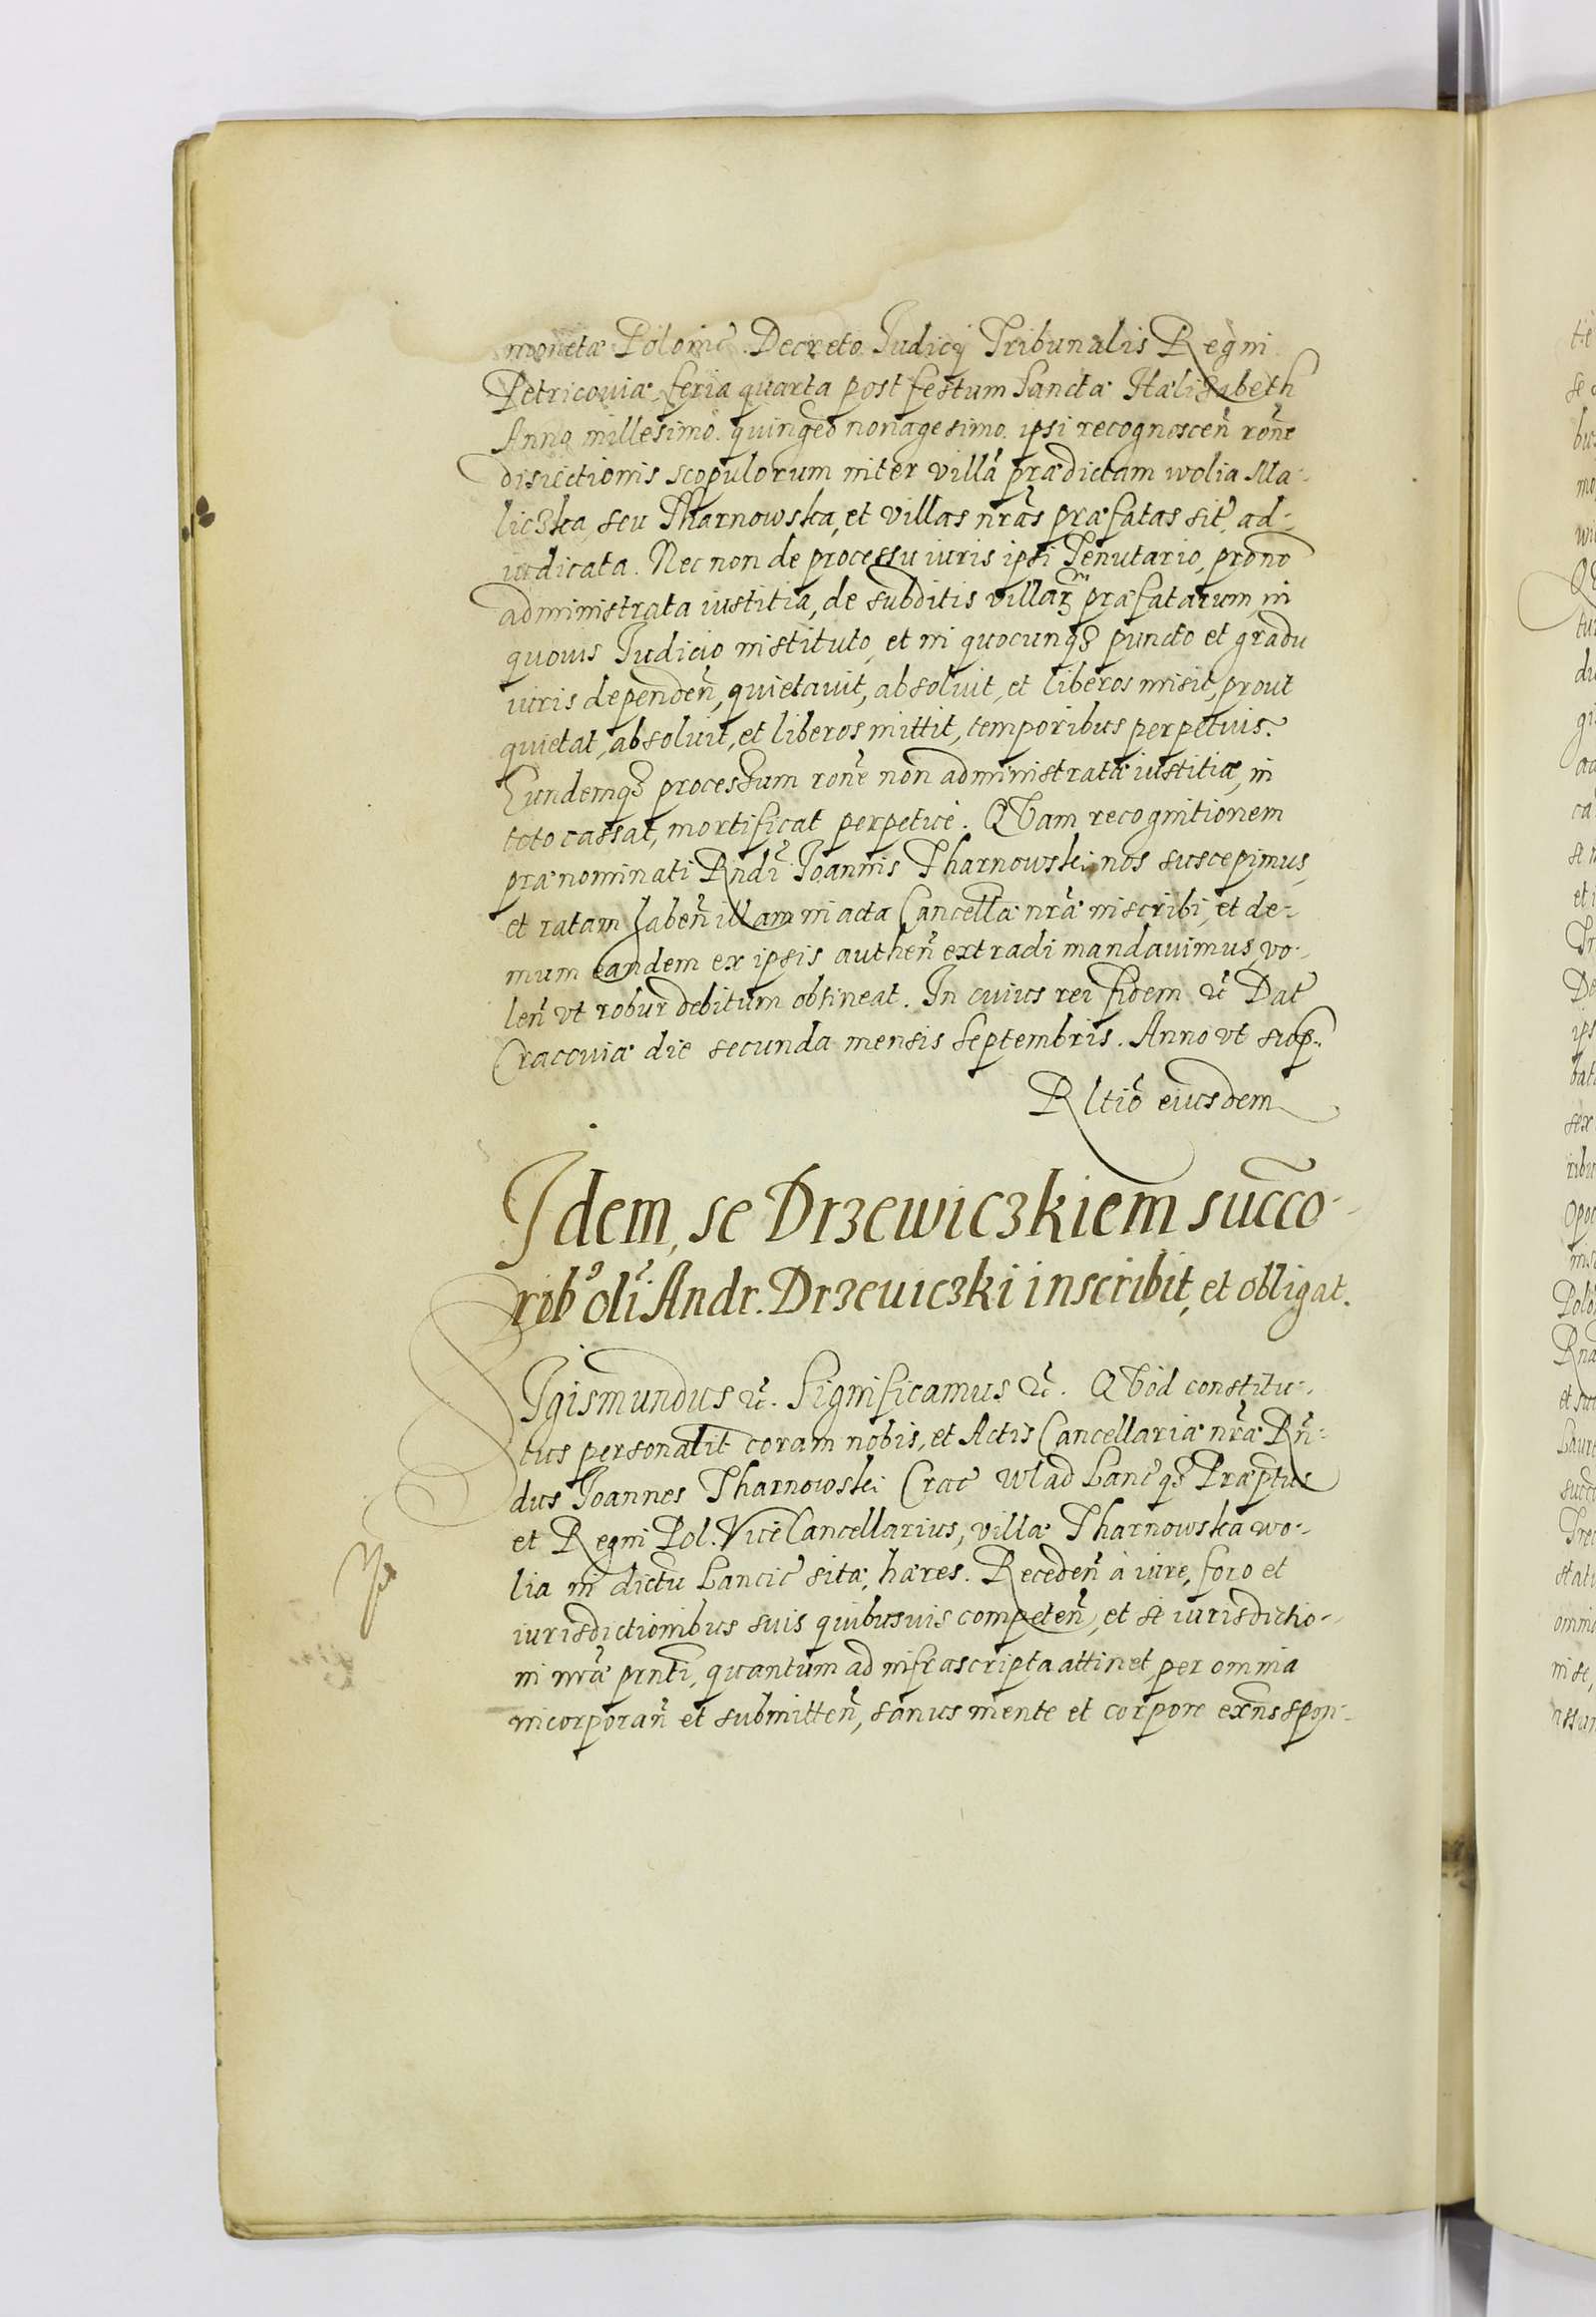 monetæ Polonic̃. Decreto Iudicij Tribunalis Regni
Petricouiæ, feria quarta post festum Sanctæ Hælisabeth
Anno millesimo quingeõ nonagesimo ipsi recognoscen̄ rõne
disiectionis scopulorum inter villã prædictam wolia Ma-
liczka, seu Tharnowska, et villas nrãs præfatas sit ad-
iudicata. Nec non de processu iuris ipsi Tenutario, pro nõ
administrata iustitia, de subditis villar̃ præfatarum, in
quouis Iudicio instituto, et in quocunq; puncto et gradu
iuris dependen̄, quietauit, absoluit, et liberos misit, prout
quietat, absoluit, et liberos mittit, temporibus perpetuis.
Eundemq; processum rõne non administratæ iustitiæ, in
toto cassat, mortificat perpetuè. QVam recognitionem
prænominati Rndĩ Ioannis Tharnowski nos suscepimus,
et ratam haben̄ illam in acta Cancellæ nræ̃ inscribi, et de-
mum eandem ex ipsis authen̄ extradi mandauimus, vo-
len̄ vt robur debitum obtineat. In cuius rei fidem ec̃ Dat̃
Cracouiæ die secunda mensis Septembris. Anno vt sup.
Rltiõ eiusdem
Idem, se Drzewiczkiem succo-
rib⁹ oli᷉ Andr. Drzeuiczki inscribit, et obligat.
SIgismundus ec̃. Significamus ec̃. QVòd constitu-
tus personalit̃ coram nobis, et Actis Cancellariæ nræ̃ Rn̄-
dus Ioannes Tharnowski Crac̃ Wlad Lanc̃ q; Præptus
et Regni Pol. ViceCancellarius, villæ Tharnowska wo-
lia in dictu Lancic̃ sitæ, hæres. Receden̄ à iure, foro et
iurisdictionibus suis quibusuis competen̄, et se iurisdictio-
ni nræ̃ pnti, quantum ad infrascripta attinet, per omnia
incorporan̄ et submitten̄, sanus mente et corpore exn̄s spon-